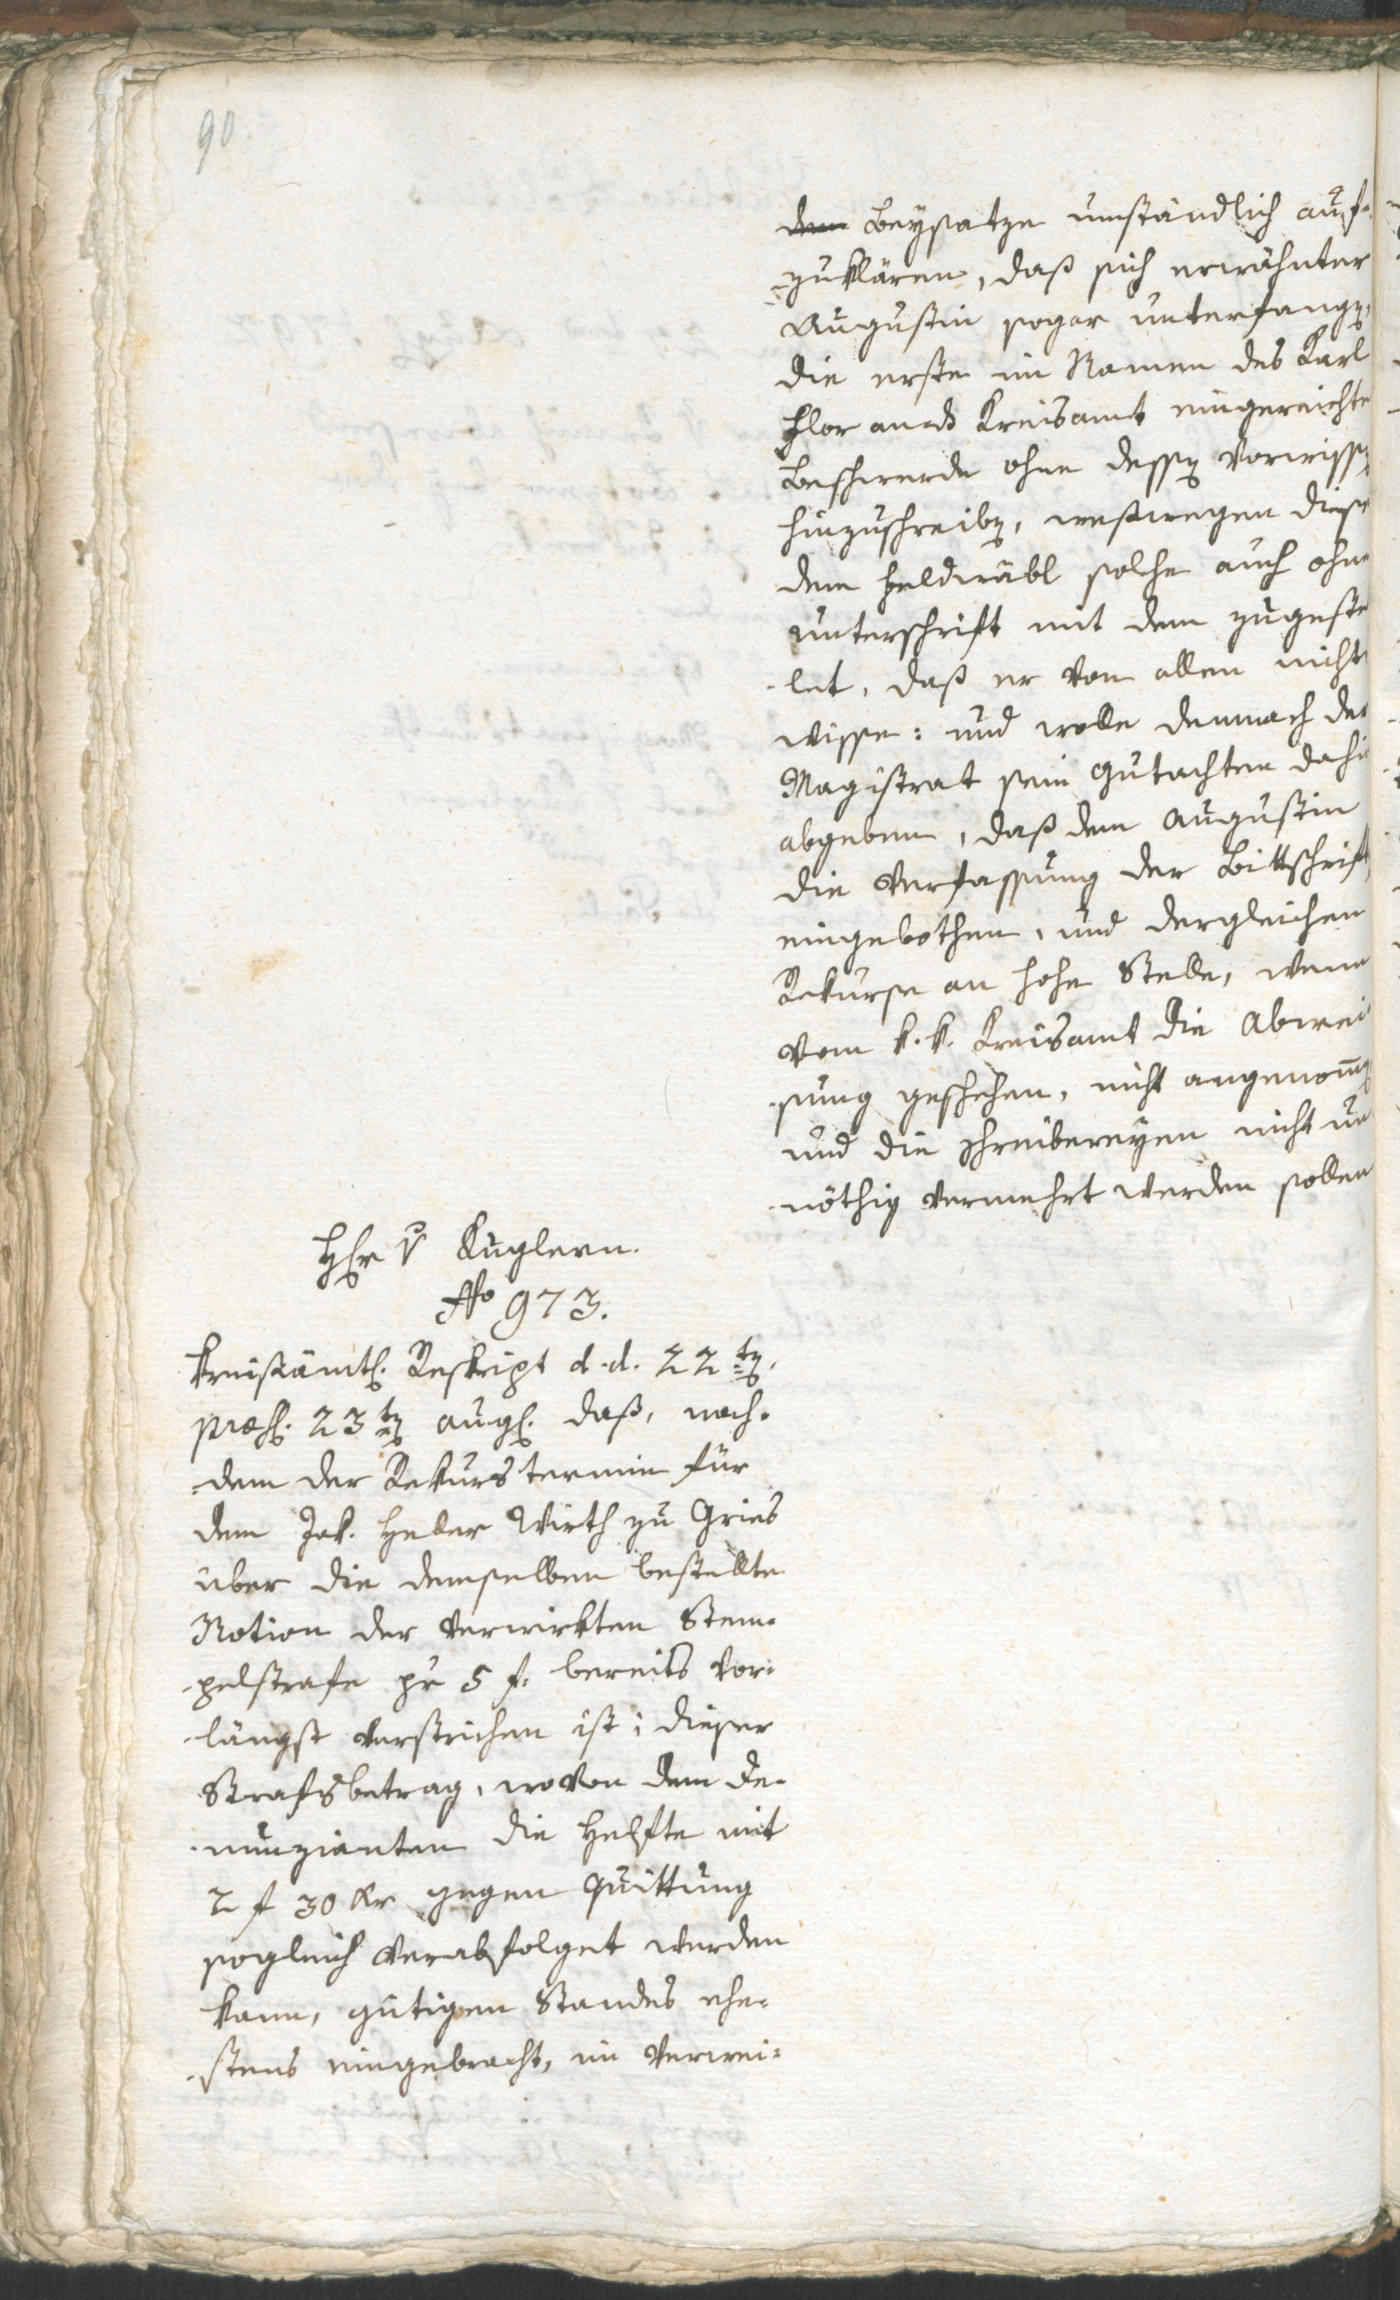 90.
dem Beysatze umständlich auf-
-zuklären, daß sich erwähnter
Augustin sogar unterfangen,
die erste im Namen des Karl
Flor an ds Kreisamt eingereichte
Beschwerde ohne dessen Vorwissen
hinzuschreiben, weßwegen dieser
dem solche auch ohne
Unterschrift mit dem zugestel
-let, daß er von allem nichts
wisse: und wolle demnach der
Magistrat sein Gutachten dahin
abgeben, daß dem Augustin
die Verfassung der Bittschrift
eingebothen, und dergleichen
Rekurse an hohe Stelle, wenn
vom k. k. Kreisamt die Abwei
-sung geschehen, nicht angenomen
und die schreibereyen nicht un
-nöthig vermehrt werden sollen
Hhr v Kuglern.
No 973.
Kreisämtl. Reskript d. d. 22ten,
præs. 23ten aug. daß, nach-
-dem der Rekurstermin für
dem Jak. Heller Wirth zu Gries
über die demselben bestellte
Notion der verwirkten Stem-
-pelstrafe pr 5 f. bereits vor-
-längst verstrichen ist; dieser
Strafsbetrag, wovon dem De-
-nunzianten die Helfte mit
2 f 30 kr gegen Quittung
sogleich verabfolget werden
kann, gütigen Standes ehe-
-stens eingebracht, im Verwei-